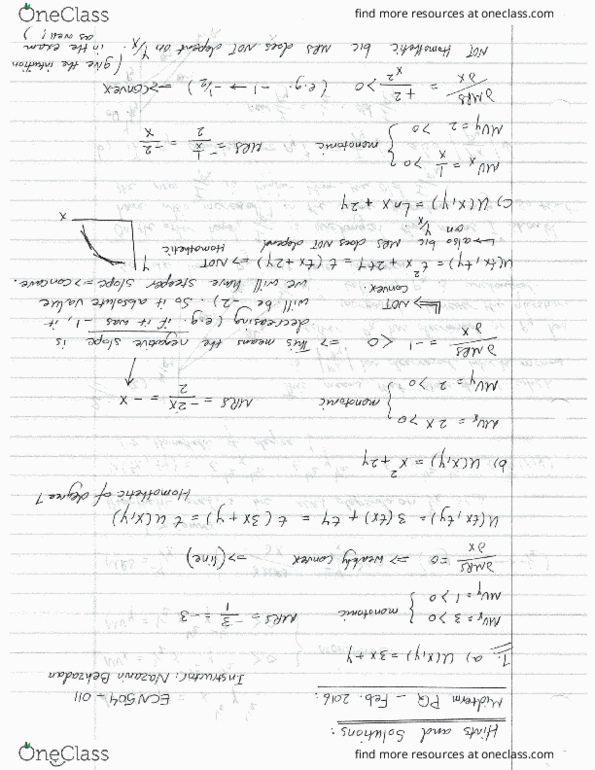 OneClass
find more resources at oneclass.com
Hints and Solutions:
Midterm PQ - Feb. 2016:
ECN504 - 011
Instructor: Nazanin Behzadan
1. a) U(x,y) = 3x+y
MUx = 3 >0
MUy = 1 >0 } monotonic MRS = -3/1 = -3
∂MRS/∂x = 0 => weakly convex => (line)
U(tx,ty) = 3(tx) + ty = t(3x+y) = t U(x,y)
Homothetic of degree 1
b) U(x,y) = x² + 2y
MUx = 2x >0
MUy = 2 >0 } monotonic MRS = -2x/2 = -x
∂MRS/∂x = -1 < 0 => This means the negative slope is
decreasing (e.g. if it was -1, it
will be -2). So it absolute value
we will have steeper slope => concave.
=> NOT convex.
U(tx,ty) = t²x + 2ty = t(tx+2y) => NOT Homothetic
↳ also b/c MRS does NOT depend
on y/x
y
x
c) U(x,y) = Lnx + 2y
MUx = 1/x >0
MUy = 2 >0 } monotonic MRS = -1/x/2 = -2/x
∂MRS/∂x = +2/x² >0 (e.g. -1 → -1/2) => convex
NOT Homothetic b/c MRS does NOT depend on y/x. (give the intuition
in the exam
as well!)
OneClass
find more resources at oneclass.com